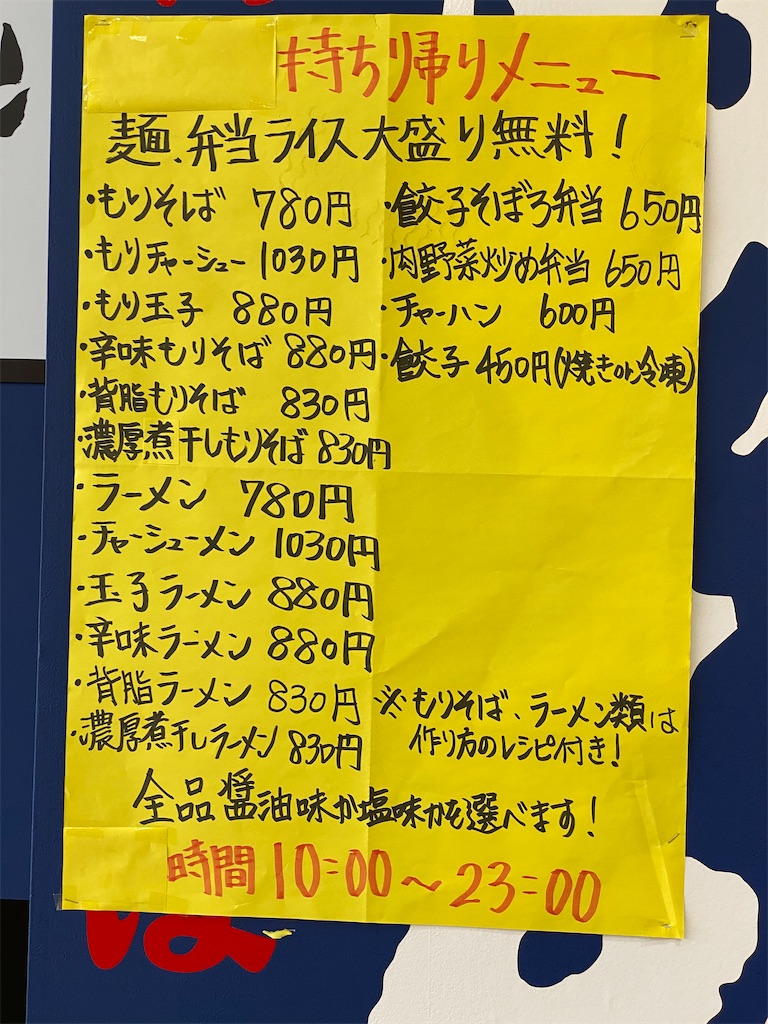 持ち帰りメニュー
麺、弁当ライス大盛り無料!
・もりそば 780円
・もりチャーシュー 1030円
・もり玉子 880円
・辛味もりそば 880円
・背脂もりそば 830円
・濃厚煮干しもりそば 830円
・ラーメン 780円
・チャーシューメン 1030円
・玉子ラーメン 880円
・辛味ラーメン 880円
・背脂ラーメン 830円
・濃厚煮干しラーメン 830円
・餃子そぼろ弁当 650円
・肉野菜炒め弁当 650円
・チャーハン 600円
・餃子 450円(焼きor冷凍)
※もりそば、ラーメン類は
作り方のレシピ付き!
全品醤油味か塩味かを選べます!
時間10:00~23:00
は